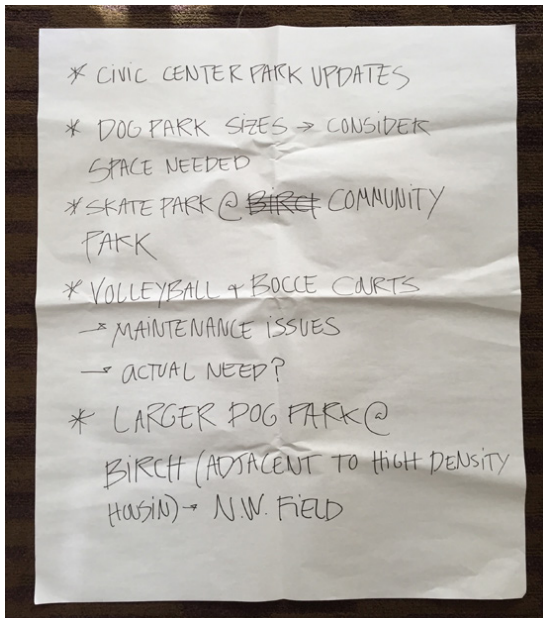 * CIVIC CENTER PARK UPDATES
* DOG PARK SIZES → CONSIDER
SPACE NEEDED
* SKATE PARK @ BIRCH COMMUNITY
PARK
* VOLLEYBALL & BOCCE COURTS
→ MAINTENANCE ISSUES
→ ACTUAL NEED?
* LARGER DOG PARK @
BIRCH (ADJACENT TO HIGH DENSITY
HOUSIN) → N.W. FIELD